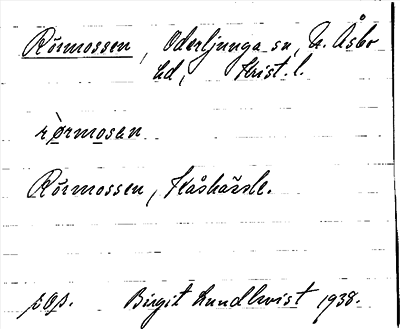 Rörmossen, Oderljunga sn, N. Åsbo
hd, Krist. l.
rö̀rmosan
Rörmossen,
Birgit Lundkvist 1938.